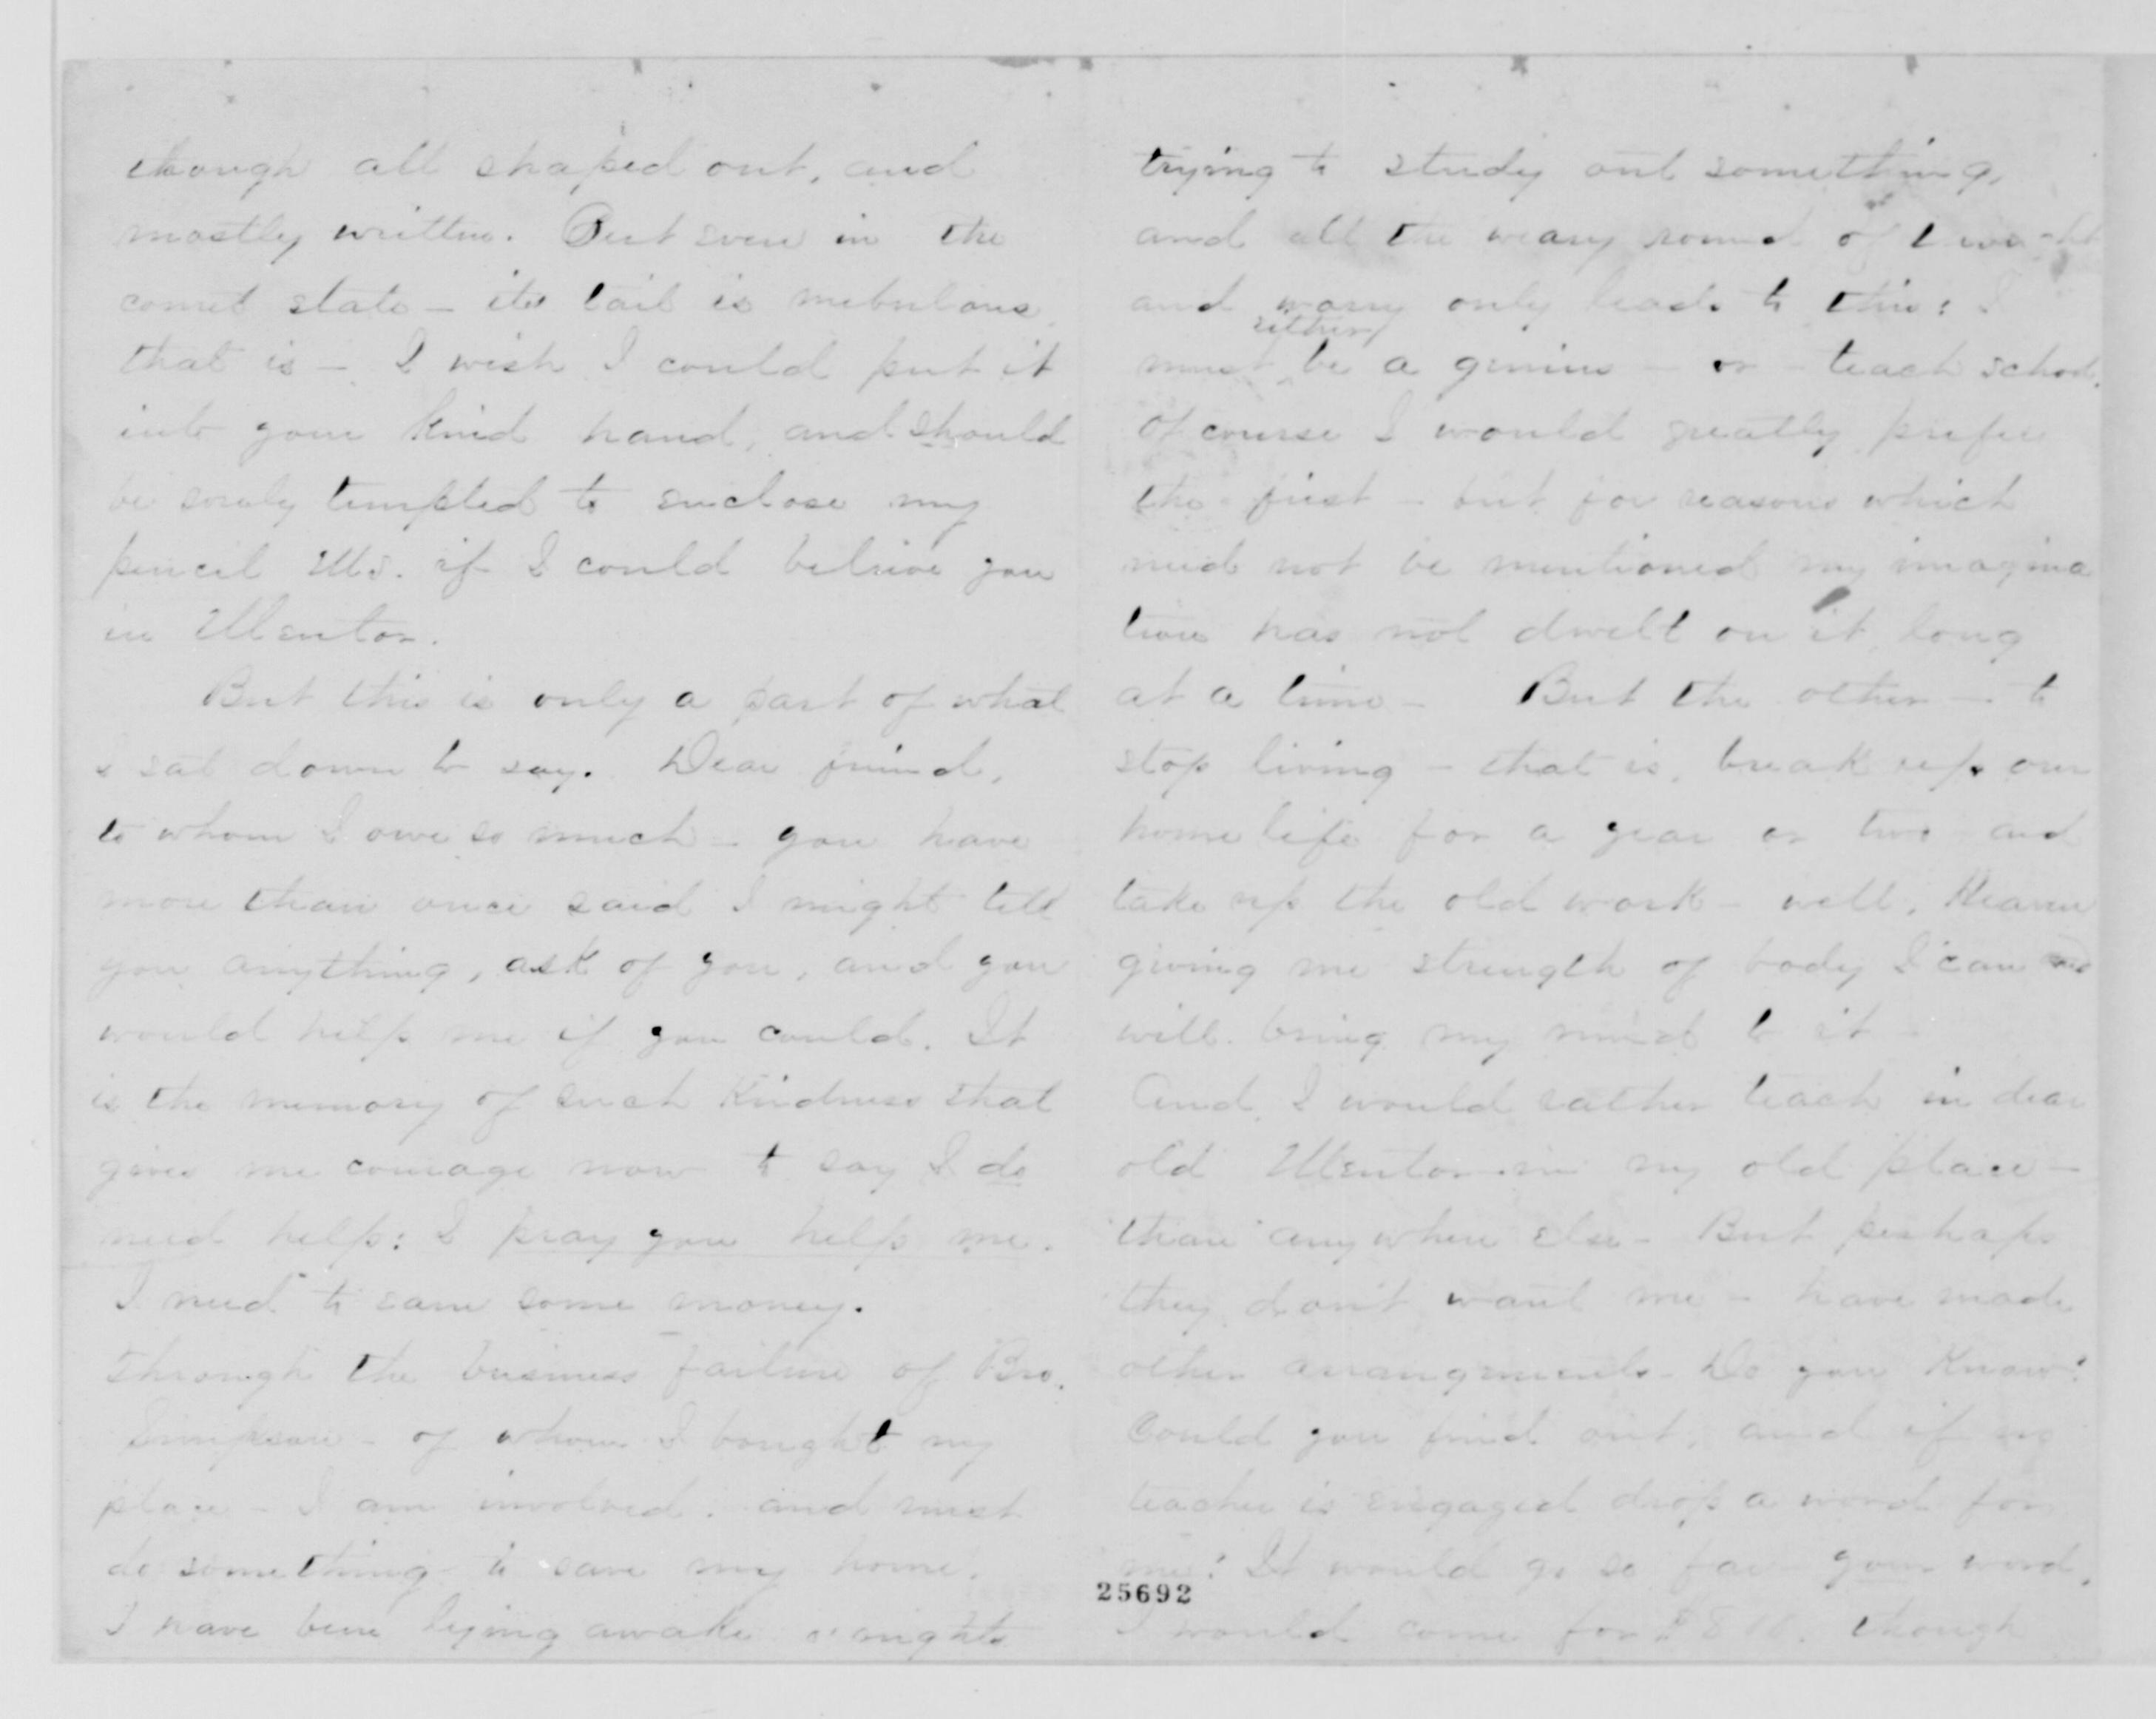 though all shaped out, and
mostly written. But even in the
comet state - its tail is nebulous
that is - I wish I could put it
into your kind hand, and should
be sorely tempted to enclose my
pencil Ms. if I could believe you
in Mentor.
But this is only a part of what
I sat down to say. Dear friend,
to whom I owe so much - you have
more than once said I might tell
you anything, ask of you, and you
would help me if you could. It
is the memory of such kindness that
gives me courage now to say I do
need help: I pray you help me.
I need to earn some money.
Through the business failure of Bro.
Simpson - of whom I bought my
place - I am involved: and must
do something to save my home.
I have been lying awake o'nights
trying to study out something,
and all the weary round of
and worry only leads to this: I
must either be a genius - or - teach school.
Of course I would greatly prefer
the first - but for reasons which
need not be mentioned my imagina
tion has not dwelt on it long
at a time - But the other - to
stop living - that is, break up our
home life for a year or two and
take up the old work - well, Heaven
giving me strength of body I can and
will bring my mind to it -
And I would rather teach in dear
old Mentor in my old place -
than anywhere else - But perhaps
they don't want me - have made
other arrangements - Do you know?
Could you find out, and if no
teacher is engaged drop a word for
me? It would go so far your word.
25692
I would come for though